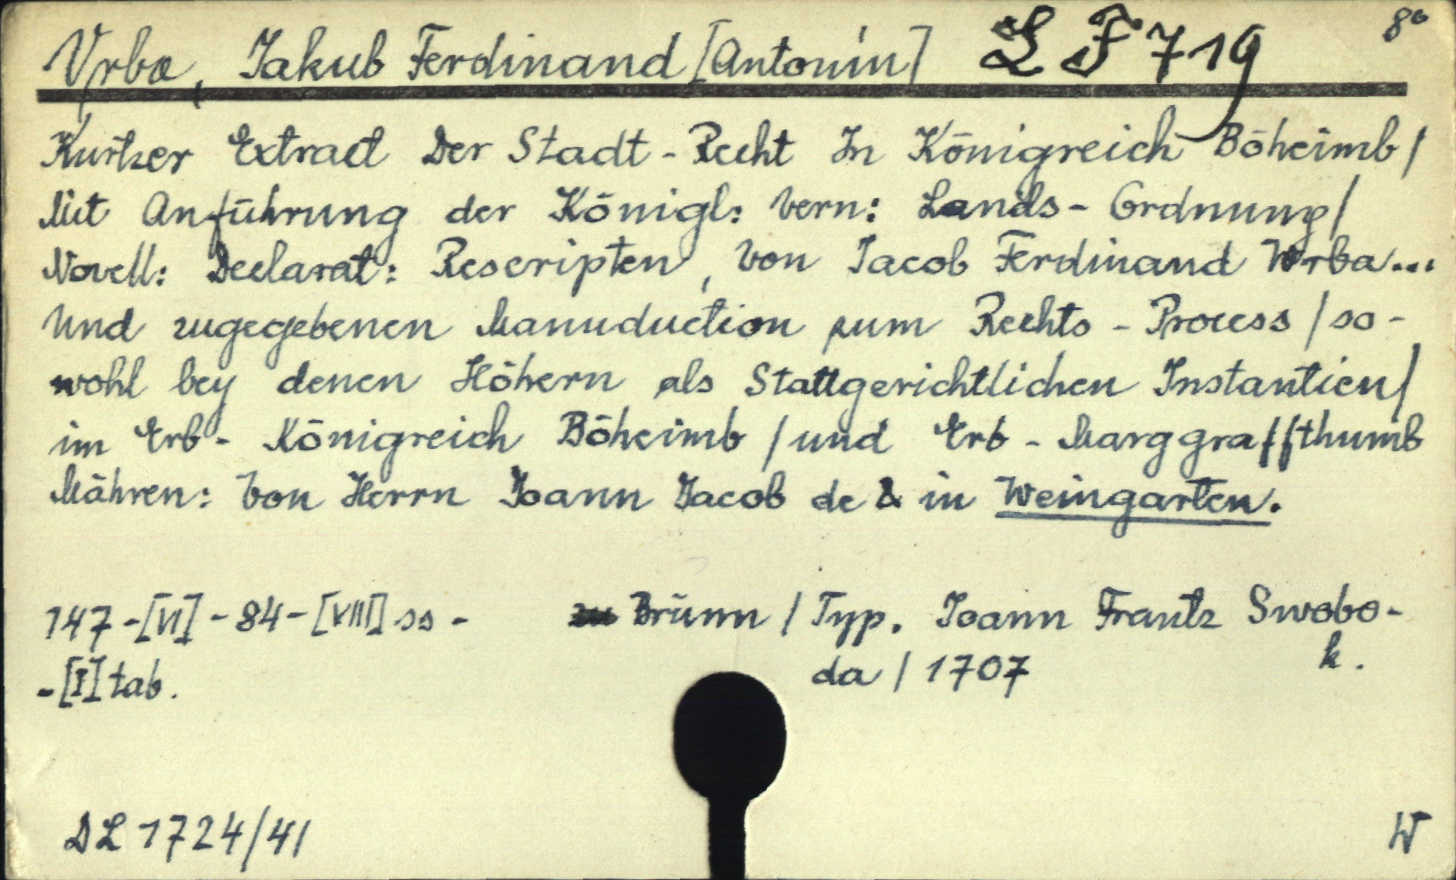 Vrba, Jakub Ferdinand [Antonín] L F 719 8°
Kurtzer Extract Der Stadt-Recht In Königreich Böheimb/
Mit Anführung der Königl: Vern: Lands-Ordnung/
Novell: Declarat: Rescripten, Von Jacob Ferdinand Wrba...
Und zugegebenen Manuduction zum Rechts-Process/so-
wohl bey denen Höhern als Stattgerichtlichen Instantien/
im Erb-Königreich Böheimb/und Erb-Marggraffthumb
Mähren: Von Herrn Joann Jacob de & in Weingarten.
147-[VI]-84-[VIII] ss - Brünn/Typ. Joann Frantz Swobo-
-[I] tab. da/1707 k.
DL 1724/41 W